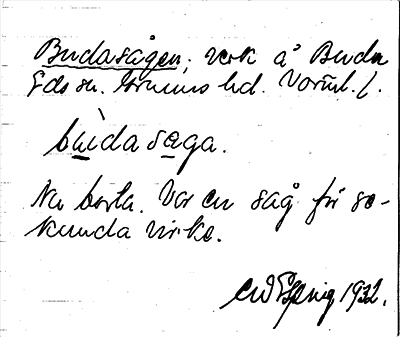 Budasågen, verk å Buda
Eds sn. Grums hd. Värml. l.
bùda saga.
Nu borta. Var en såg för se-
kunda virke.
1932.